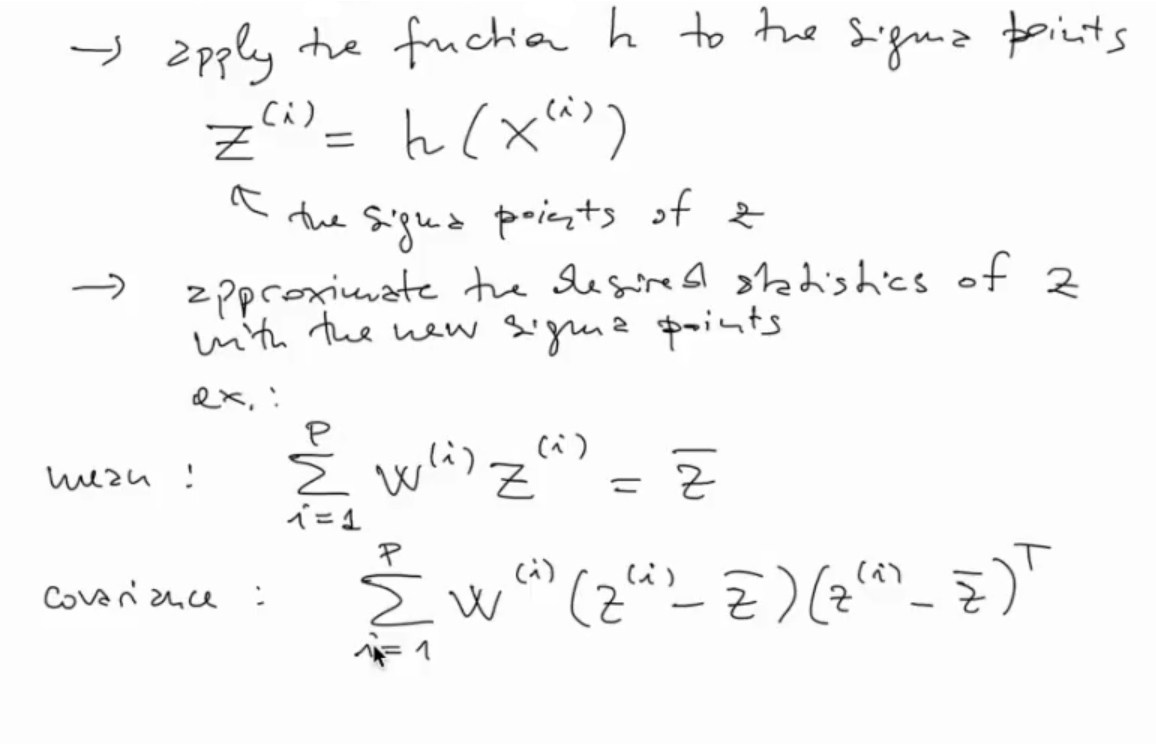 → apply the function h to the sigma points
z^(i) = h(x^(i))
↖ the sigma points of z
→ approximate the desired statistics of z
with the new sigma points
ex.:
mean: ∑_{i=1}^{P} w^(i) z^(i) = z̄
covariance: ∑_{i=1}^{P} w^(i) (z^(i) - z̄)(z^(i) - z̄)^T